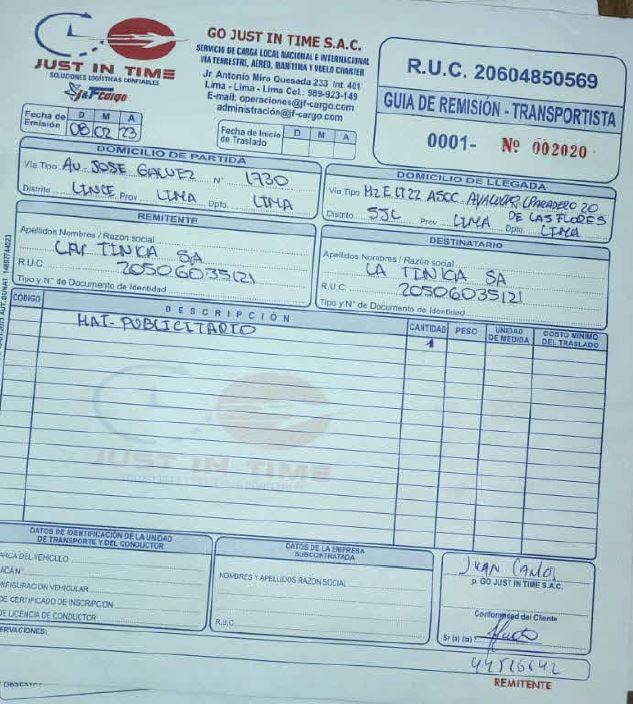 JUST IN TIME
SOLUCIONES LOGÍSTICAS CONFIABLES
J&F Cargo
GO JUST IN TIME S.A.C.
SERVICIO DE CARGA LOCAL NACIONAL E INTERNACIONAL
VÍA TERRESTRE, AÉREO, MARÍTIMA Y VUELO CHARTER
Jr. Antonio Miro Quesada 233 Int. 401
Lima - Lima - Lima Cel.: 989-923-149
E-mail: operaciones@jf-cargo.com
administración@jf-cargo.com
R.U.C. 20604850569
GUIA DE REMISIÓN - TRANSPORTISTA
0001- Nº 002020
Fecha de Emisión D M A
08 02 23
Fecha de Inicio de Traslado D M A
DOMICILIO DE PARTIDA
Vía Tipo AV. JOSE GALVEZ Nº 1730
Distrito LINCE Prov LIMA Dpto. LIMA
DOMICILIO DE LLEGADA
Vía Tipo MZ E LT 22 ASOC. (PARADERO 20
DE LAS FLORES
Distrito SJL Prov LIMA Dpto. LIMA
REMITENTE
Apellidos Nombres / Razón social
LA TINKA SA
R.U.C. 20506035121
Tipo y N° de Documento de Identidad
DESTINATARIO
Apellidos Nombres / Razón social
LA TINKA SA
R.U.C. 20506035121
Tipo y N° de Documento de Identidad
CÓDIGO DESCRIPCIÓN CANTIDAD PESO UNIDAD DE MEDIDA COSTO MÍNIMO DEL TRASLADO
MAT. PUBLICITARIO 1
JUST IN TIME
DATOS DE IDENTIFICACIÓN DE LA UNIDAD
DE TRANSPORTE Y DEL CONDUCTOR
ARCA DEL VEHÍCULO
ACAN
NFIGURACIÓN VEHICULAR
DE CERTIFICADO DE INSCRIPCIÓN
DE LICENCIA DE CONDUCTOR
ERVACIONES:
DATOS DE LA EMPRESA
SUBCONTRATADA
NOMBRES Y APELLIDOS RAZON SOCIAL
R.U.C
JUAN CARLOS
p. GO JUST IN TIME S.A.C.
Conformidad del Cliente
Sr (a) (ta) :
44526642
REMITENTE